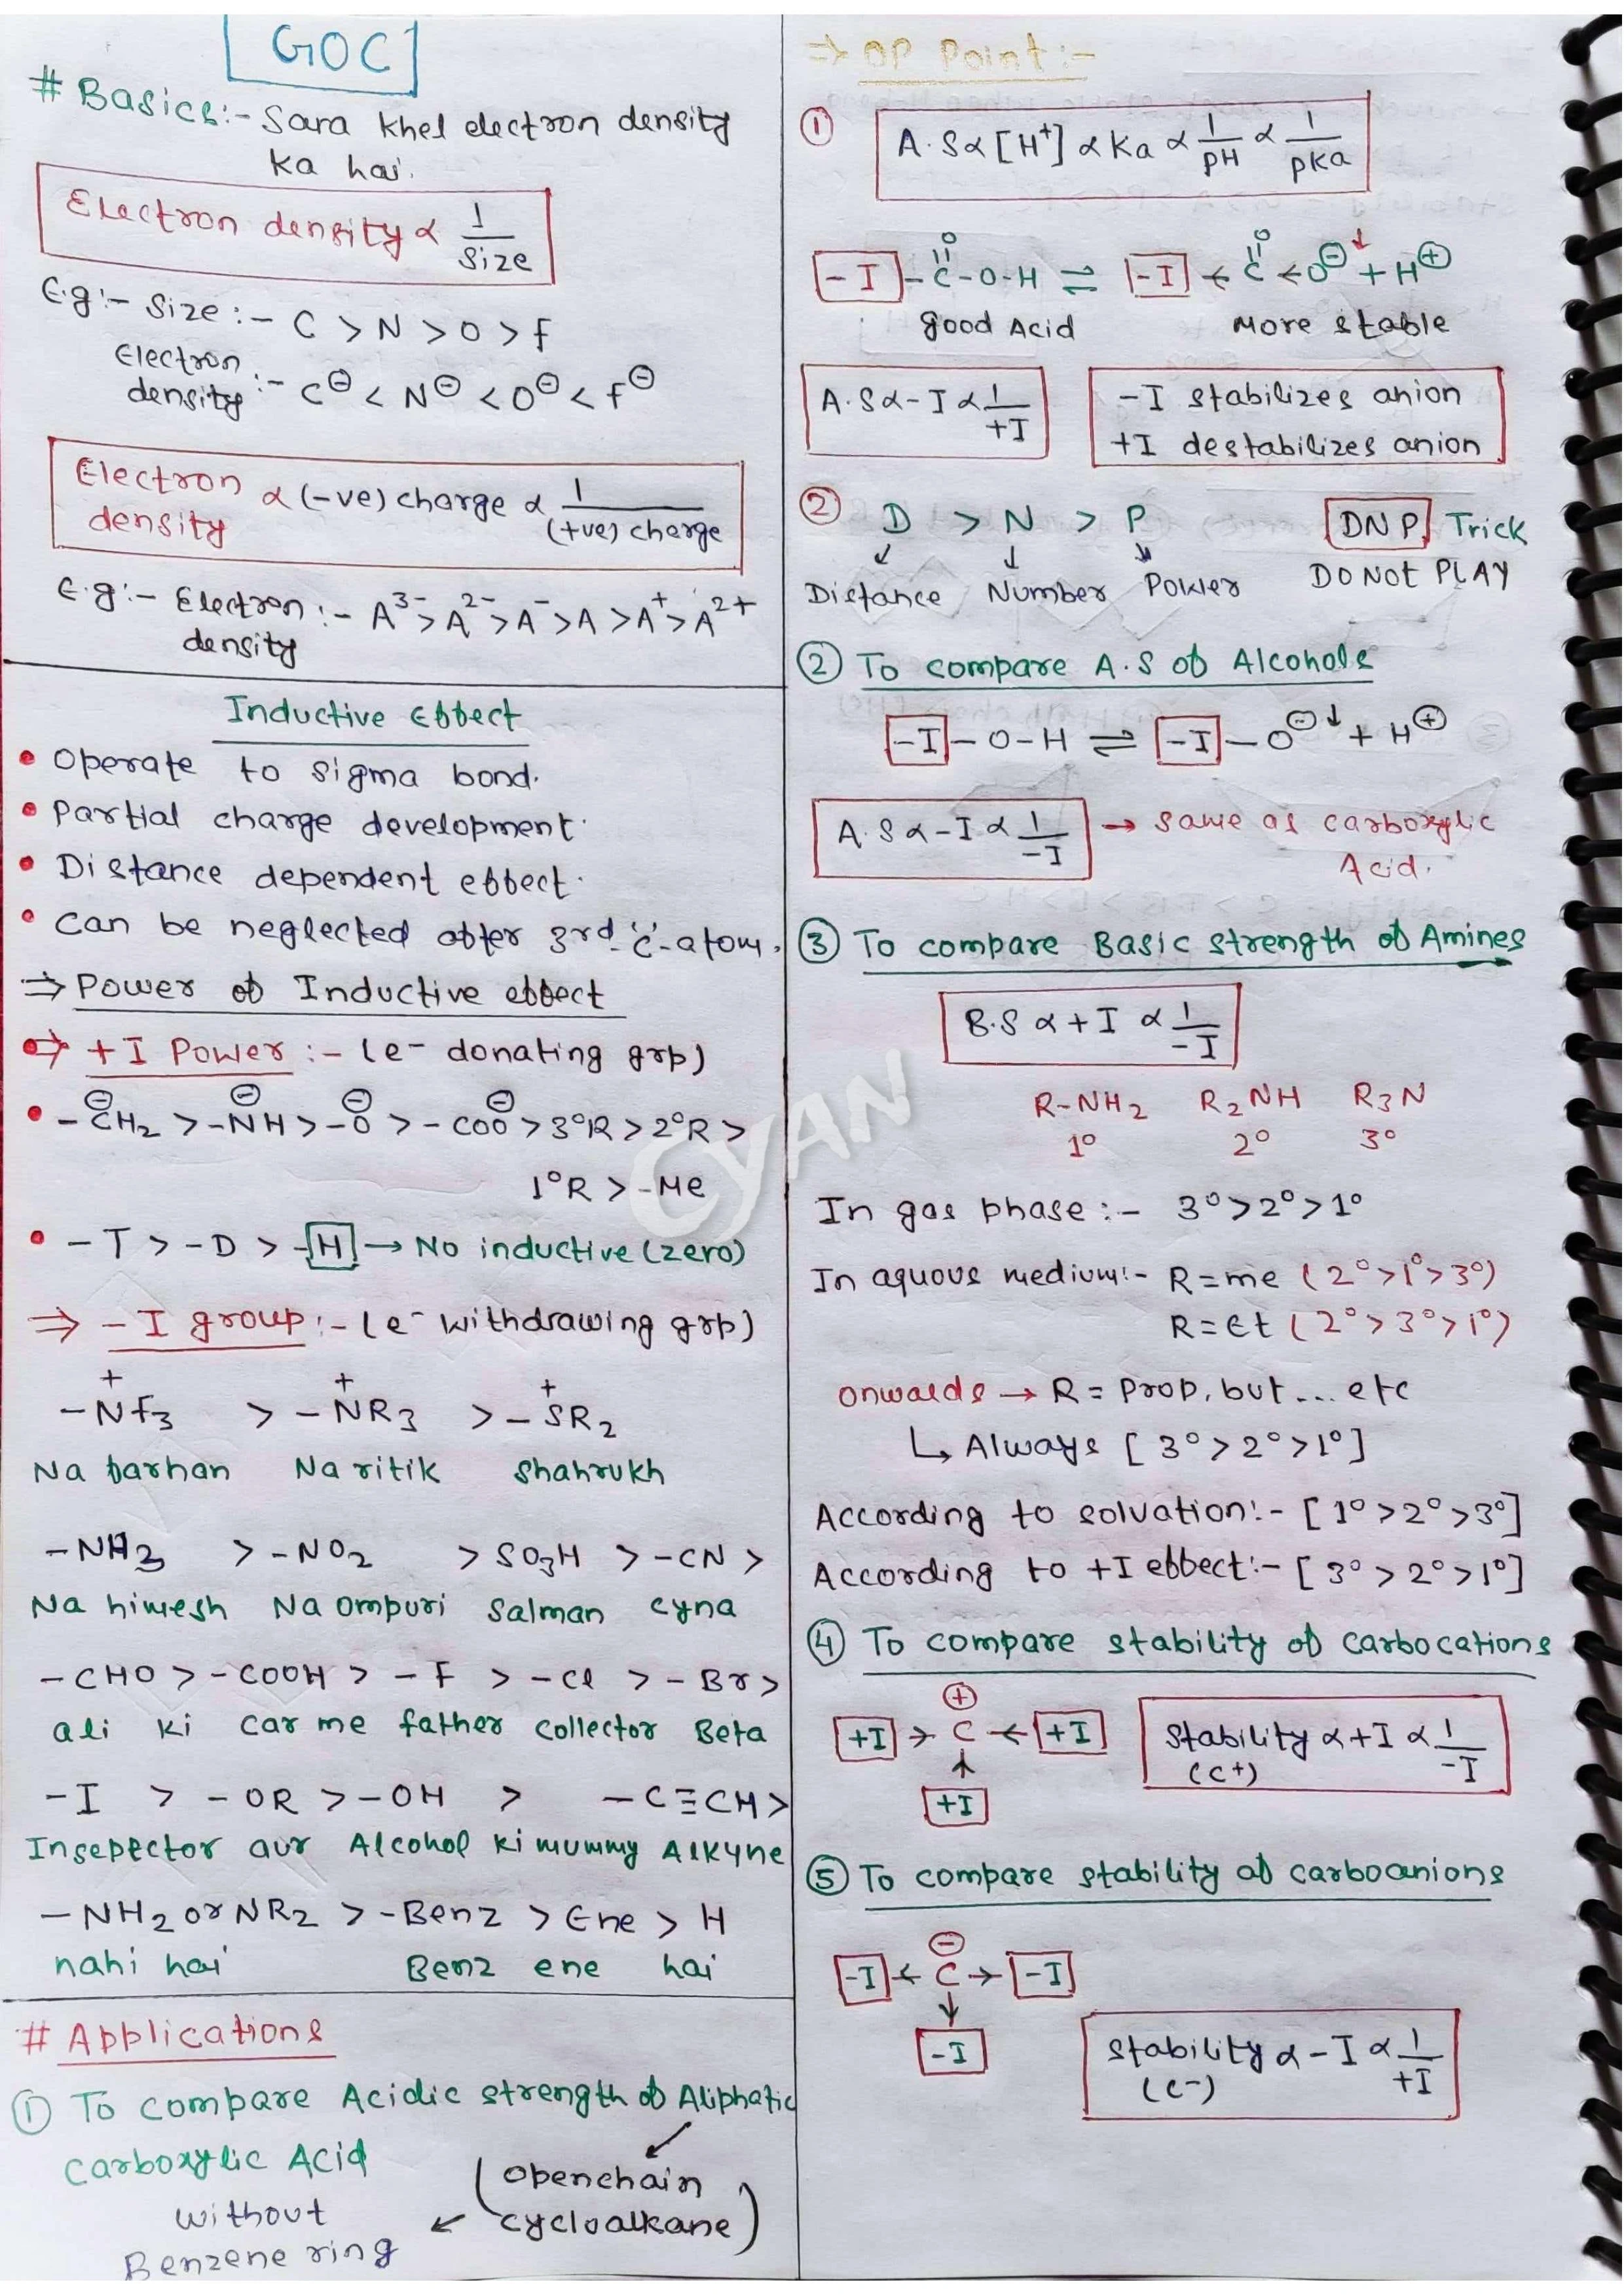 GOC
# Basics:- Sara khel electron density
ka hai.
Electron density ∝ 1/Size
E.g:- Size :- C > N > O > F
Electron density :- C⊖ < N⊖ < O⊖ < F⊖
Electron density ∝ (-ve) charge ∝ 1/(+ve) charge
E.g:- Electron density :- A³⁻ > A²⁻ > A⁻ > A > A⁺ > A²⁺
Inductive Effect
• Operate to sigma bond.
• Partial charge development.
• Distance dependent effect.
• Can be neglected after 3rd 'C'-atom.
⇒ Power of Inductive effect
⇒ +I Power :- (e⁻ donating grp)
• -C⊖H₂ > -N⊖H > -O⊖ > -COO⊖ > 3°R > 2°R >
1°R > -Me
• -T > -D > -H → No inductive (zero)
⇒ -I group :- (e⁻ withdrawing grp)
-N⁺F₃ > -N⁺R₃ > -S⁺R₂
Na farhan Na ritik Shahrukh
-NH₃ > -NO₂ > SO₃H > -CN >
Na himesh Na ompuri Salman cyna
-CHO > -COOH > -F > -Cl > -Br >
ali ki car me father collector Beta
-I > -OR > -OH > -C≡CH >
Insepector aur Alcohol ki mummy Alkyne
-NH₂ or NR₂ > -Benz > Ene > H
nahi hai Benz ene hai
# Applications
① To compare Acidic strength of Aliphatic
Carboxylic Acid
(openchain
cycloalkane)
without
Benzene ring
⇒ OP Point :-
① A.S ∝ [H⁺] ∝ Ka ∝ 1/pH ∝ 1/pKa
-I -C(=O)-O-H ⇌ -I ← C(=O) ← O⊖↓ + H⊕
good Acid More stable
A.S ∝ -I ∝ 1/+I
-I stabilizes anion
+I destabilizes anion
② D > N > P DNP Trick
Distance Number Power DO NOT PLAY
② To compare A.S of Alcohols
-I - O-H ⇌ -I - O⊖↓ + H⊕
A.S ∝ -I ∝ 1/-I → same as carboxylic
Acid.
③ To compare Basic strength of Amines
B.S ∝ +I ∝ 1/-I
R-NH₂ R₂NH R₃N
1° 2° 3°
In gas phase :- 3° > 2° > 1°
In aquous medium:- R = me (2° > 1° > 3°)
R = Et (2° > 3° > 1°)
onwards → R = Prop, but... etc
↳ Always [3° > 2° > 1°]
According to solvation:- [1° > 2° > 3°]
According to +I effect:- [3° > 2° > 1°]
④ To compare stability of carbocations
+I → C⊕ ← +I
↑
+I
Stability ∝ +I ∝ 1/-I
(C+)
⑤ To compare stability of carboanions
-I ← C⊖ → -I
↓
-I
stability ∝ -I ∝ 1/+I
(C-)
CYAN